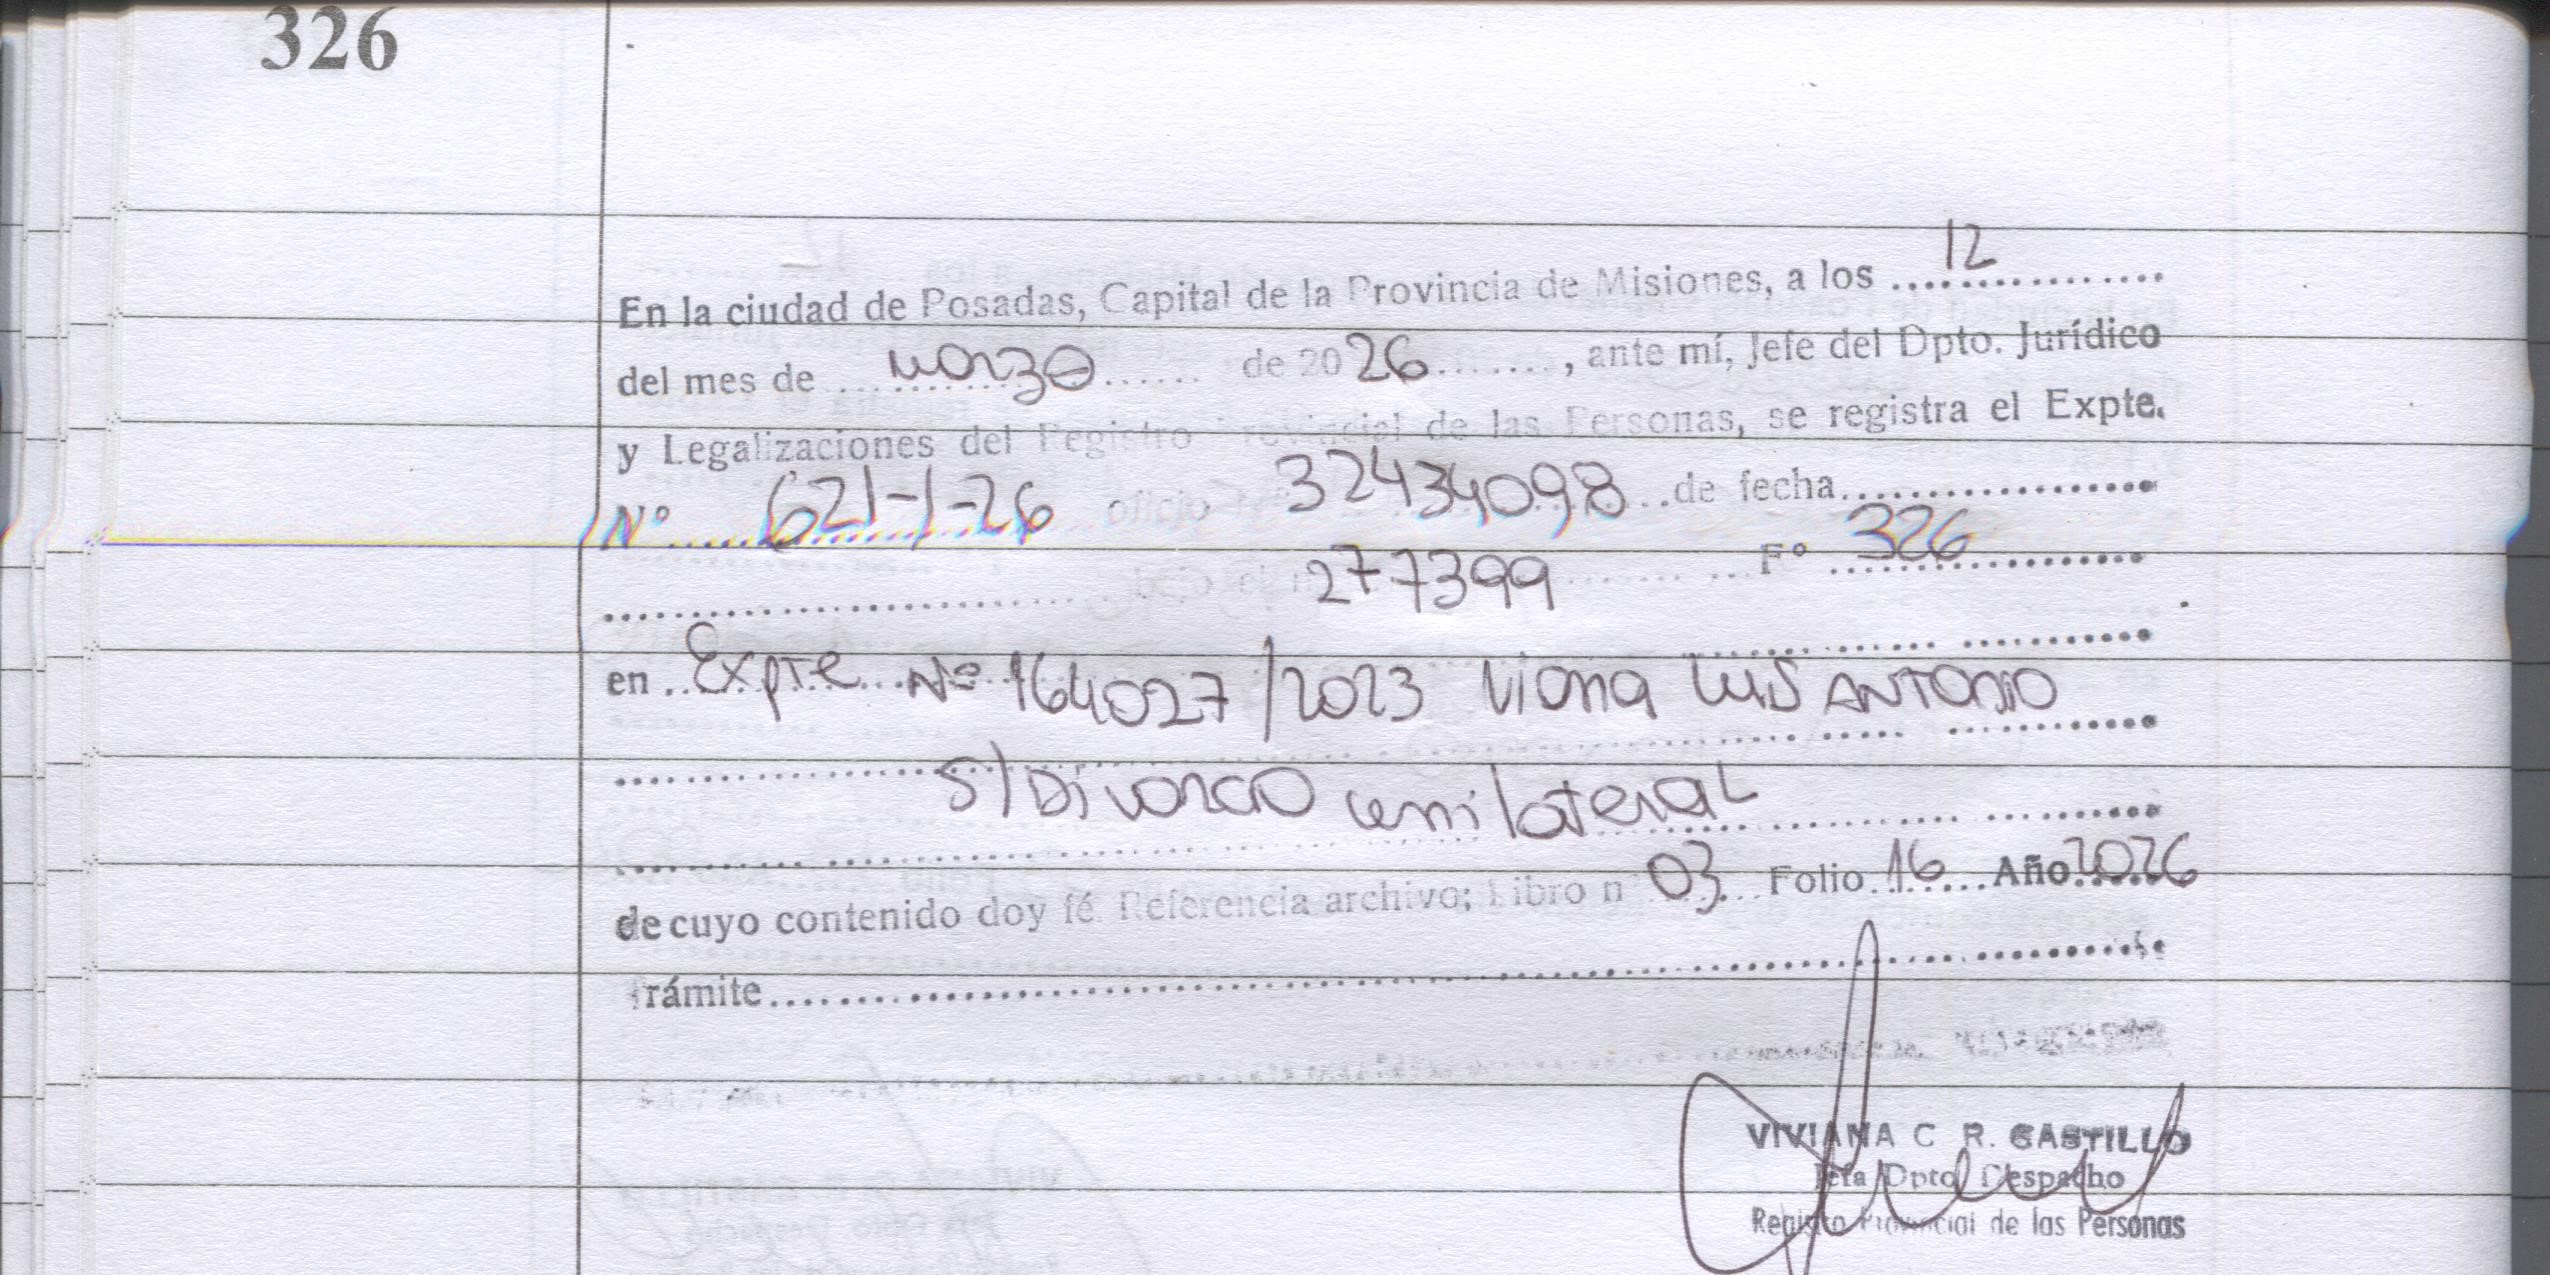 326
En la ciudad de Posadas, Capital de la Provincia de Misiones, a los 12
del mes de marzo de 2026, ante mí, Jefe del Dpto. Jurídico
y Legalizaciones del Registro Provincial de las Personas, se registra el Expte.
Nº 621-1-26 oficio 32434098 de fecha
277399 Fº 326
en Expte Nº 164027/2023 Viana Luis ANTONIO
S/Divorcio unilateral
de cuyo contenido doy fé. Referencia archivo; Libro n 03 Folio 16 Año 2026
Trámite
VIVIANA C R. CASTILLO
Jefa Dpto Despacho
Registro Provincial de las Personas